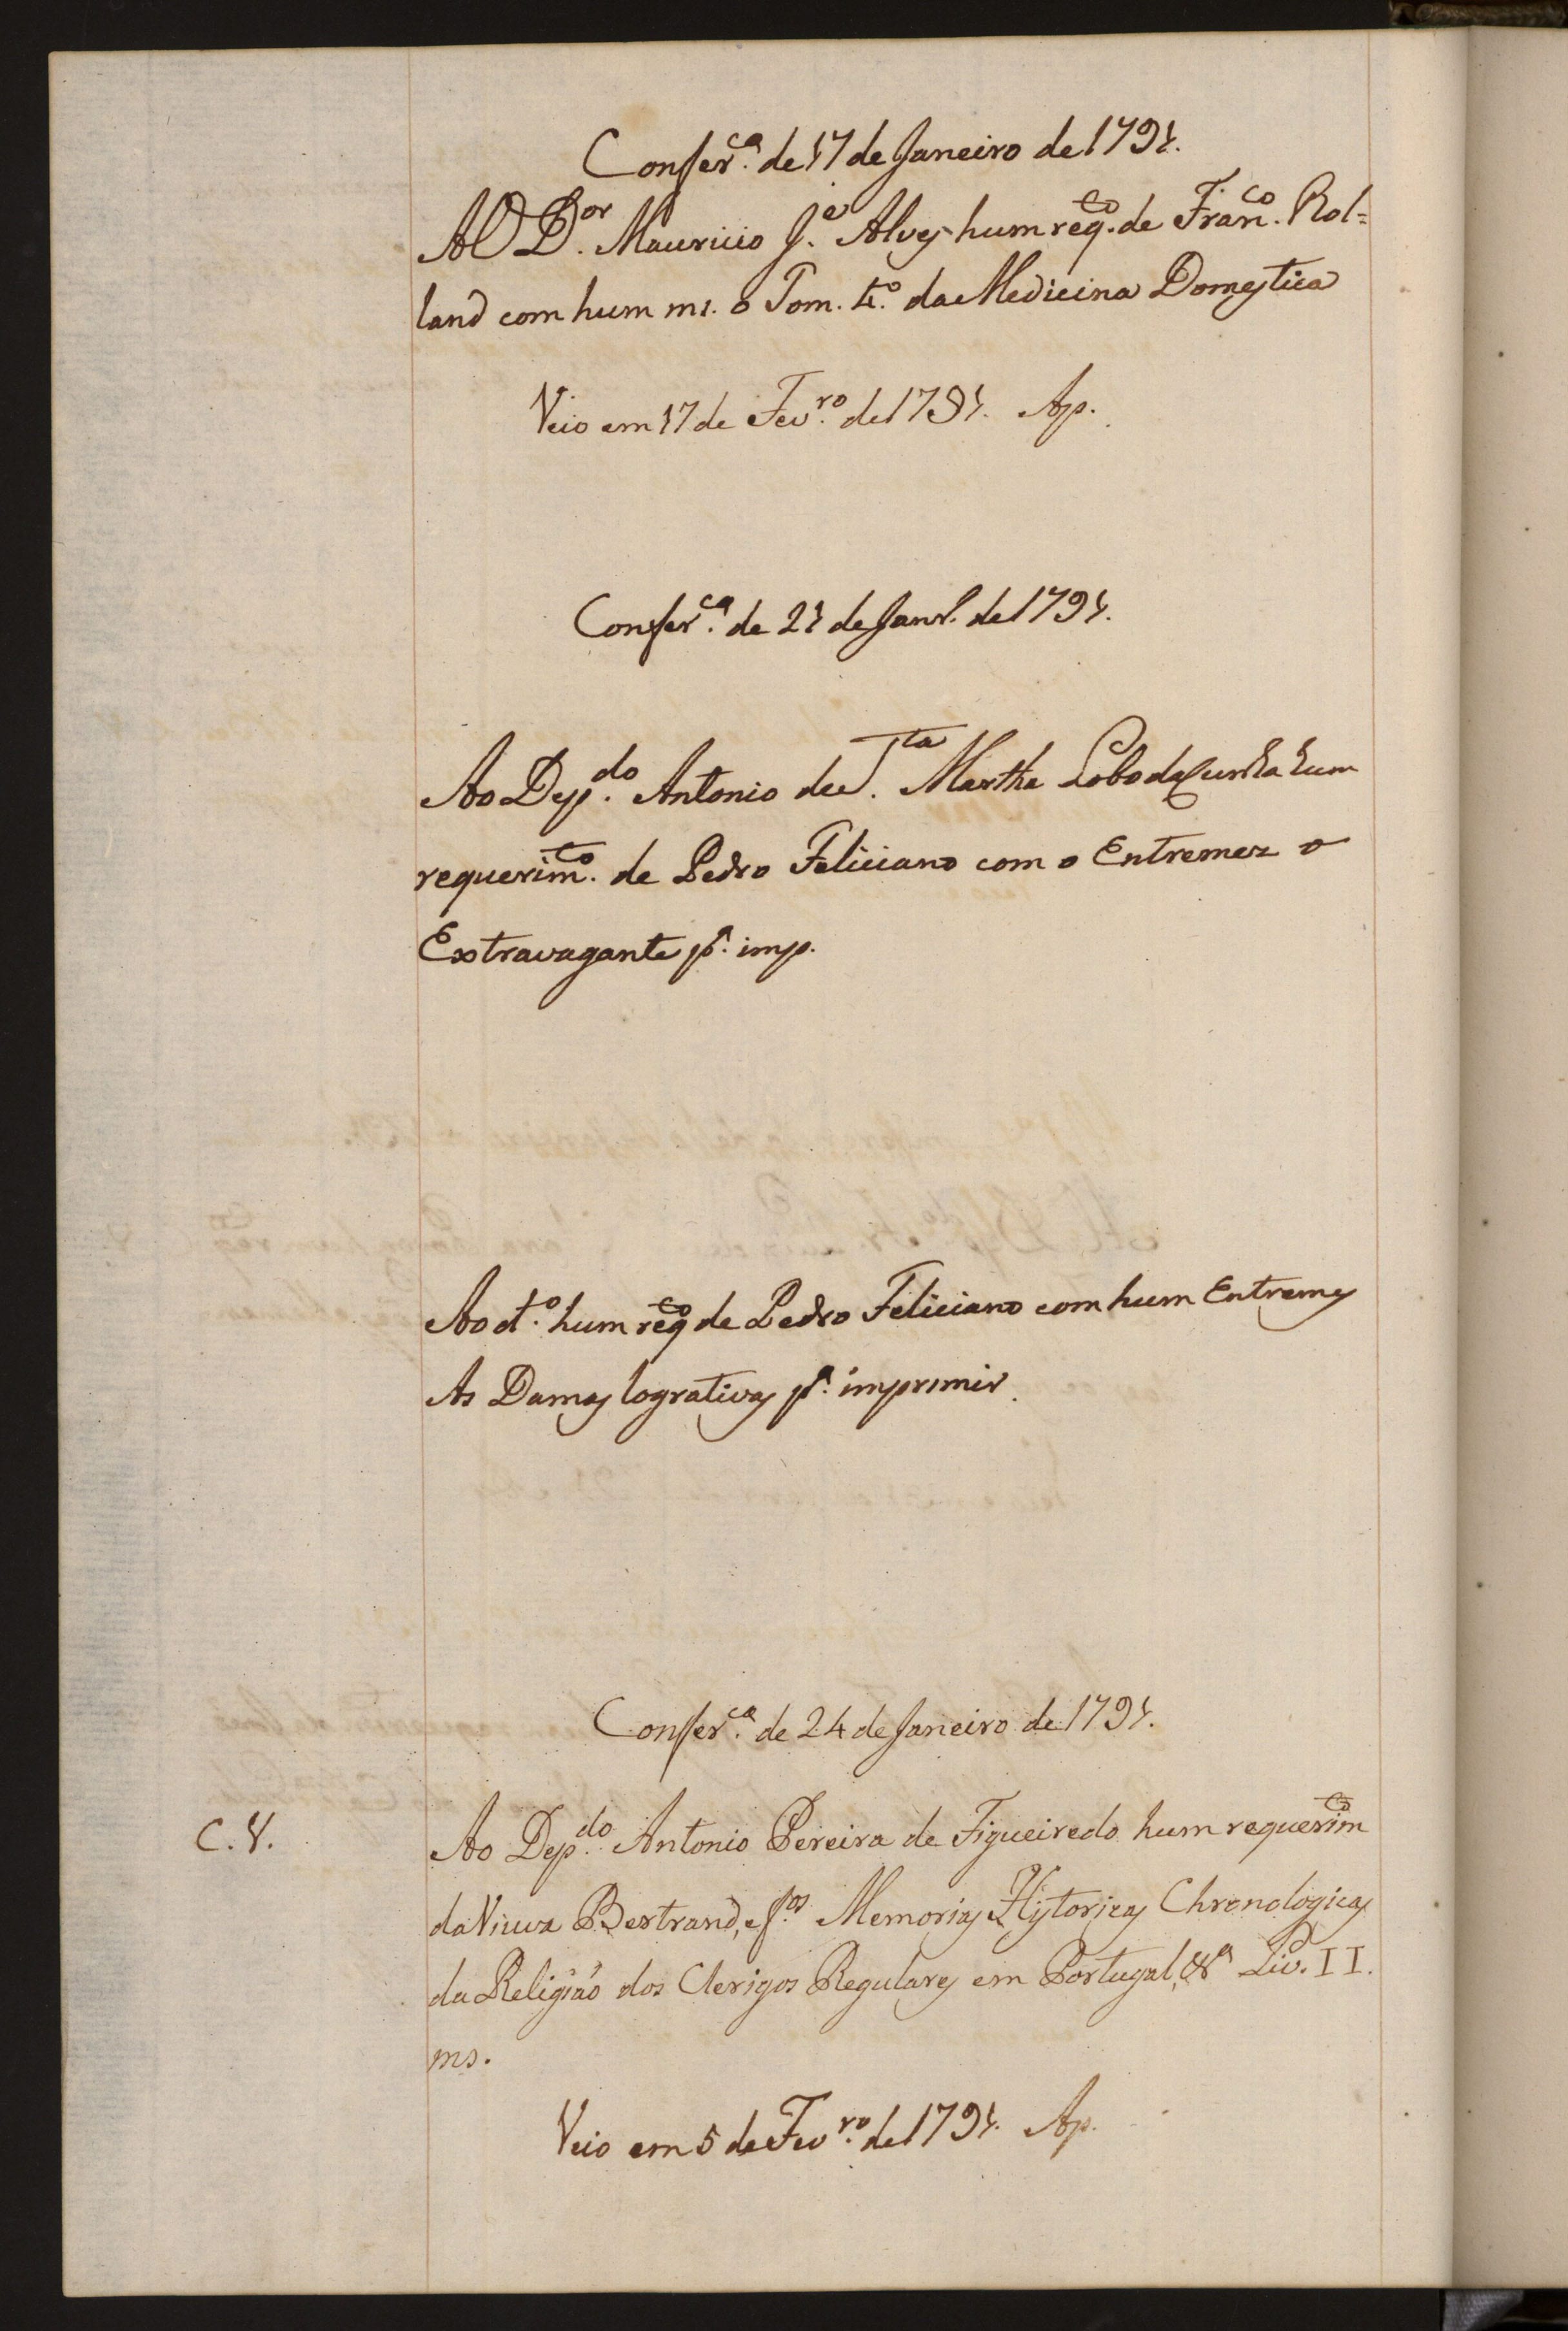 Confer.ca de 17 de Janeiro de 1791.
AO D.or Mauricio J.e Alves hum req.to de Fran.co Rol=
land com hum ms. o Tom. 4.o da Medicina Domestica
Veio em 17 de Fev.ro de 1791. Ap.
Confer.ca de 21 de Janr. de 1791.
Ao Dep.do Antonio de S.ta Martha Lobo da Cunha hum
requerim.to de Pedro Feliciano com o Entremez o
Extravagante p.a imp.
Ao d.to hum req.to de Pedro Feliciano com hum Entremes
As Damas logrativas p.a imprimir.
Confer.ca de 24 de Janeiro de 1791.
C. V.
Ao Dep.do Antonio Pereira de Figueiredo hum requerim.to
da Viuva Bertrand, e f.os Memorias Historicas Chronologicas
da Religião dos Clerigos Regulares em Portugal, &.a Liv. II.
ms.
Veio em 5 de Fev.ro de 1791. Ap.